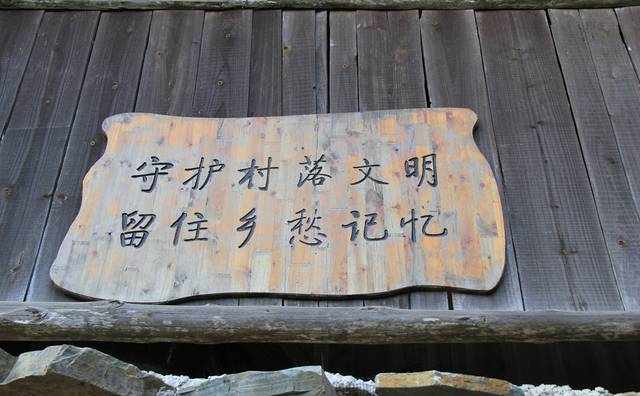 守护村落文明
留住乡愁记忆